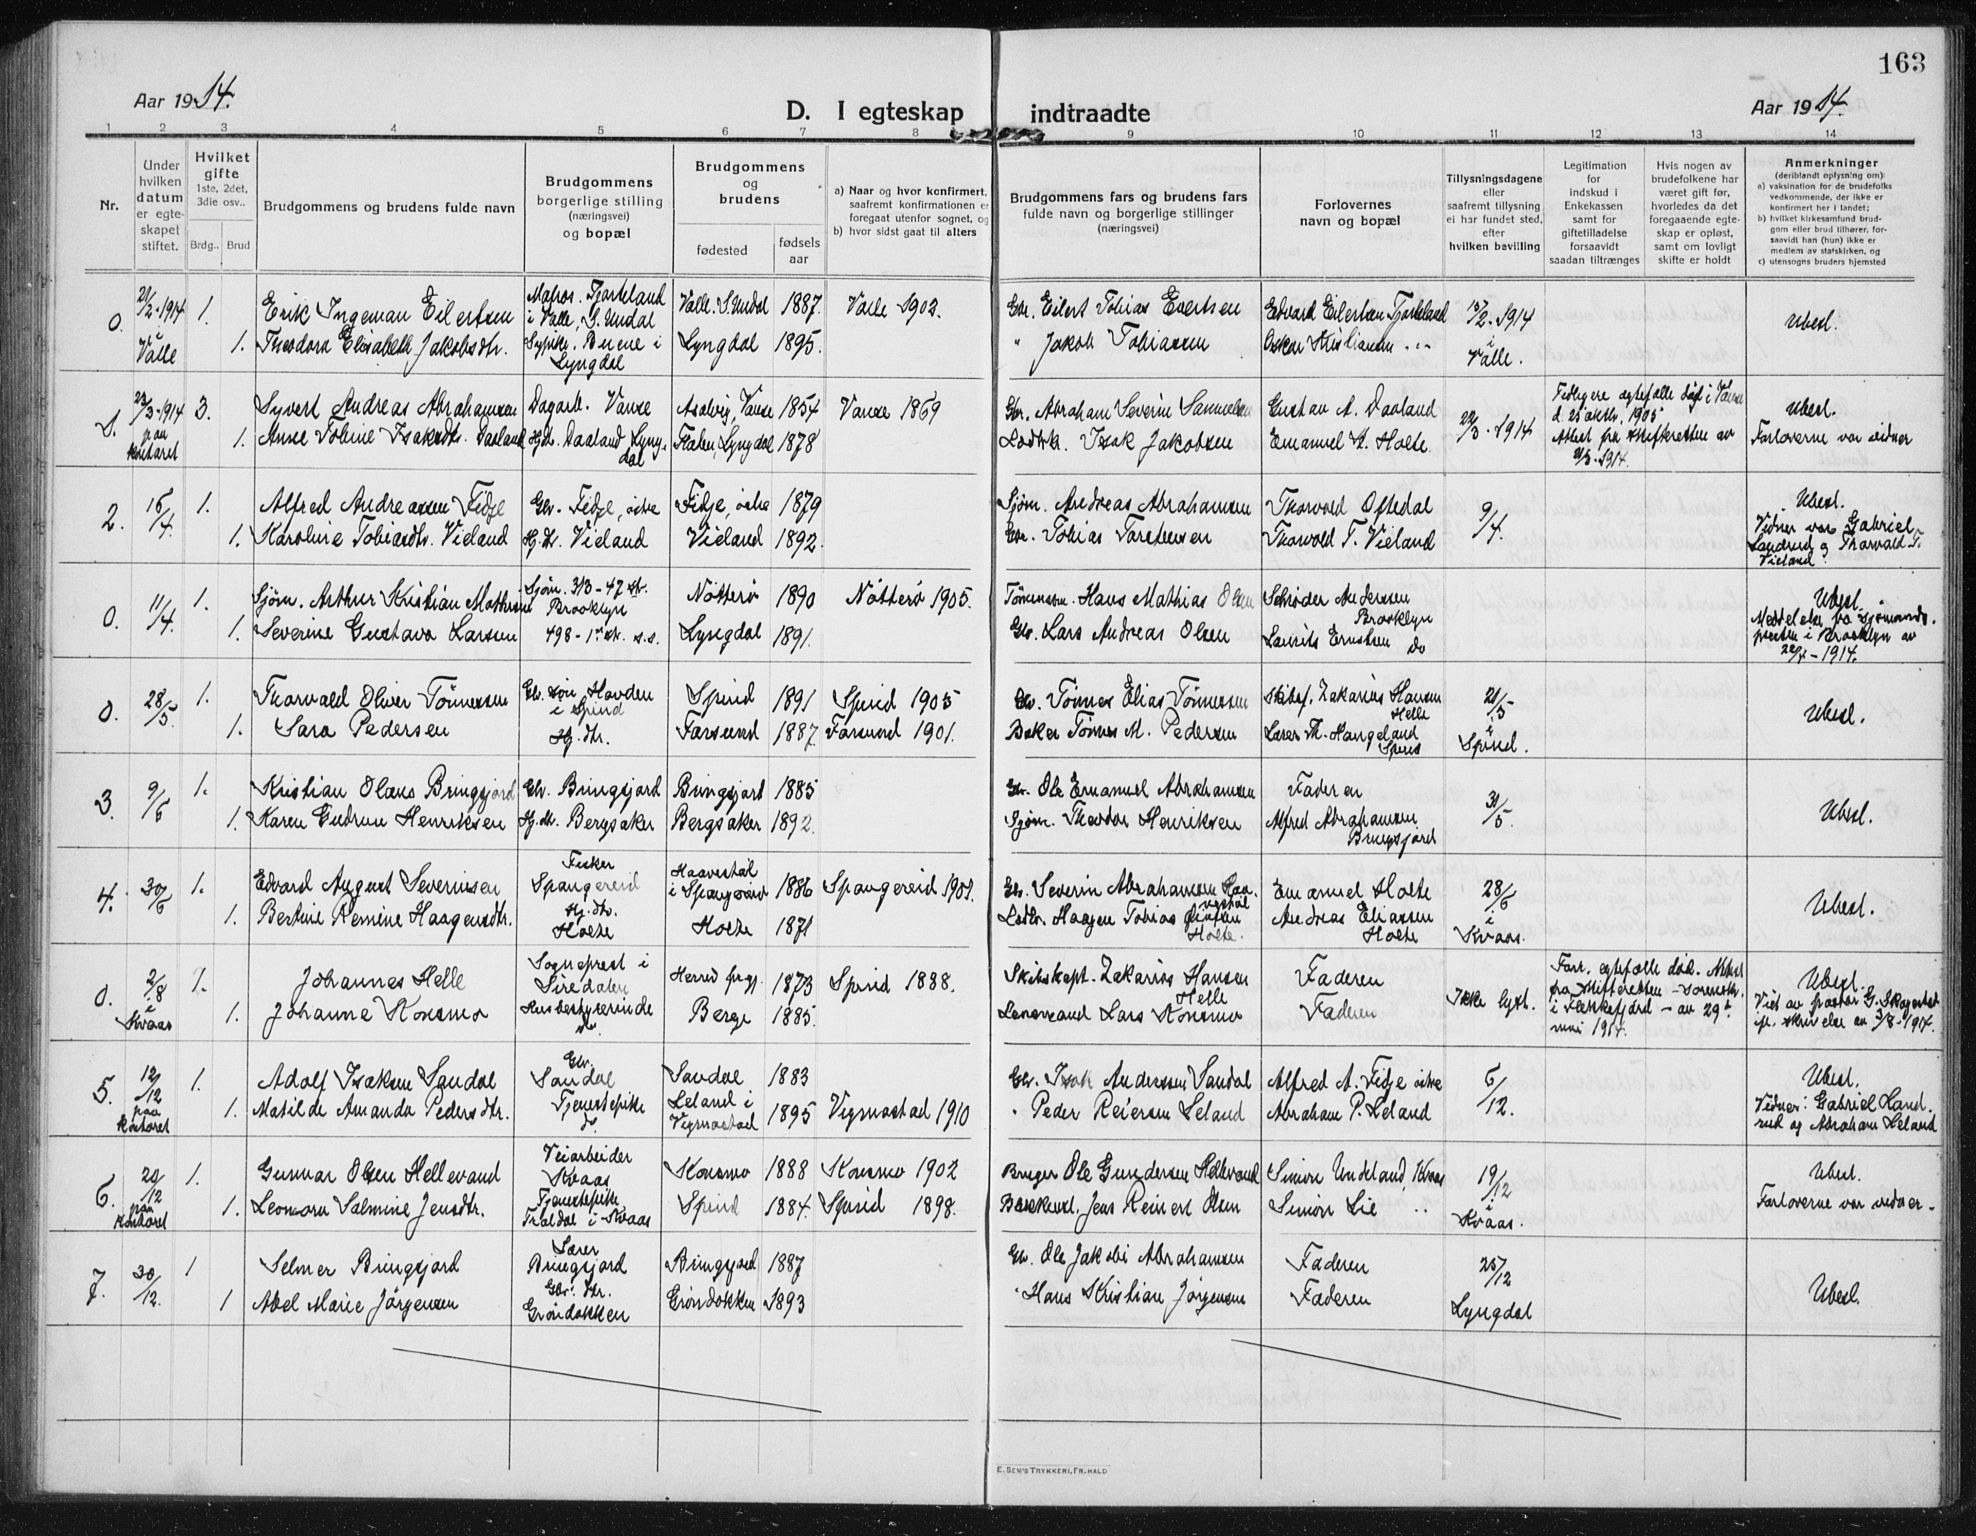 163
Aar 1914.
D. I egteskap indtraadte
Aar 1914.
1 2 3 4 5 6 7 8 9 10 11 12 13 14
Nr.
Under hvilken datum er egteskapet stiftet.
Hvilket gifte
1ste, 2det, 3die osv..
Brdg.. Brud
Brudgommens og brudens fulde navn
Brudgommens borgerlige stilling (næringsvei) og bopæl
Brudgommens og brudens
fødested
fødselsaar
a) Naar og hvor konfirmert, saafremt konfirmationen er foregaat utenfor sognet, og
b) hvor sidst gaat til alters
Brudgommens fars og brudens fars fulde navn og borgerlige stillinger (næringsvei)
Forlovernes navn og bopæl
Tillysningsdagene eller saafremt tillysning ei har fundet sted, efter hvilken bevilling
Legitimation for indskud i Enkekassen samt for giftetilladelse forsaavidt saadan tiltrænges
Hvis nogen av brudefolkene har været gift før, hvorledes da det foregaaende egteskap er opløst, samt om lovligt skifte er holdt
Anmerkninger
(deriblandt oplysning om):
a) vaksination for de brudefolks vedkommende, der ikke er konfirmert her i landet;
b) hvilket kirkesamfund brudgom eller brud tilhører, forsaavidt han (hun) ikke er medlem av statskirken, og
c) utensogns bruders hjemsted
0. 21/2-1914 i Valle 1. Erik Ingeman Eilertsen Matros. Fjorteland i Valle, S. Undal Valle S. Undal 1887. Valle 1902. Gbr. Eilert Tobias Evertsen Edvard Eilertsen Fjorteland 15/2-1914 i Valle. Ubesl.
1. Theodora Elisabeth Jakobsdtr. Sypike. Buene i Lyngdal Lyngdal 1895. " Jakob Tobiassen Oskar Kristiansen
1. 23/3-1914 paa kontoret 3. Syvert Andreas Abrahamsen Dagarb. Vanse Aasalvig, Vanse 1854 Vanse 1869 Gbr. Abraham Severin Samuelsen Gustav A. Daaland 22/3-1914 Tidligere egtefælle død i Vanse d. 25 oktbr. 1905 Attest fra skifteretten av 21/3-1914. Ubesl. Forloverne var vidner
1. Anne Tobine Isaksdtr. Daaland Hj.dtr. Daaland Lyngdal Lyngdal 1878 Isak Jakobsen Emanuel K. Holte.
2. 15/4 1. Alfred Andreassen Fidje Gbr. Fidje, östre Fidje, östre 1879 Sjöm. Andreas Abrahamsen Thorvald Oftedal 9/4. Ubesl. Vidner var Gabriel Landrud og Thorvald T. Vieland.
1. Karoline Tobiasdtr. Vieland Hj.dtr. Vieland Vieland 1892. Gbr. Tobias Torstensen Thorvald T. Vieland
0. 11/4. 1. Sjöm. Arthur Kristian Mathisen Sjöm. 313-47 str. Brooklyn Nötterö 1890 Nötterö 1905. Tömmerm. Hans Mathias Olsen Schröder Anderssen Brooklyn Ubesl. Meddelelse fra sjömandspresten i Brooklyn av 22/4-1914.
1. Severine Gustava Larsen 498-1st str. s.s. Lyngdal 1891. Gbr. Lars Andreas Olsen Laurits Erntsen Do
0. 28/5. 1. Thorvald Oliver Tönnessen Gbr. sön Havden i Spind Spind 1891 Spind 1905 Gbr. Tönnes Elias Tönnessen Skibsf. Zakarias Hansen Helle 21/5 i Spind. Ubesl.
1. Sara Pedersen Hj. dtr. Farsund 1887. Farsund 1901. Baker Tönnes M. Pedersen Lærer Th. Haugeland Spind
3. 9/6 1. Kristian Olaus Bringsjord Gbr. Bringsjord Bringsjord 1885 Gbr. Ole Emanuel Abrahamsen Faderen 31/5. Ubesl.
1. Karen Gudrun Henriksen Hj.dtr. Bergsaker Bergsaker 1892. Sjöm. Theodor Henriksen Alfred Abrahamsen Bringsjord
4. 30/6 1. Edvard August Severinsen Fisker Spangereid Haavestöl i Spangereid 1886 Spangereid 1901. Gbr. Severin Abrahamsen Haavestöl Emanuel Holte 28/6 i Kvaas. Ubesl.
1. Bertine Remine Haagensdtr. Hj.dtr. Holte Holte 1871 Haagen Tobias Holte. Andreas Eliassen Holte
0. 2/8 i Kvaas 1. Johannes Helle Sogneprest i Siredalen Herred 1873 Spind 1888. Skibskapt. Zakarias Hansen Helle Faderen Ikke lyst. Forr. egtefælle död. Attest fra skifteretten - Sorenskr. i Flekkefjord - av 29de mai 1914. Ubesl. Viet av pastor G. Skagestad ifl. skrivelse av 3/8-1914.
1. Johanne Konsmo Husbestyrerinde Berge 1885. Lensmand Lars Konsmo Faderen
5. 12/12 paa kontoret 1. Adolf Isaksen Sandal Gbr. Sandal Sandal 1883 Gbr. Isak Anderssen Sandal Alfred A. Fidje östre 6/12. Ubesl. Vidner: Gabriel Landrud og Abraham Leland
1. Matilde Amanda Pedersdtr. Tjenestepike Leland i Vigmostad 1895 Vigmostad 1910 " Peder Reiersen Leland Abraham P. Leland
6. 20/12 paa kontoret 1. Gunnar Olsen Hellevand Veiarbeider Kvaas Konsmo 1888 Konsmo 1902 Bruger Ole Gundersen Hellevand Simon Undeland, Kvaas 19/12 i Kvaas. Ubesl. Forloverne var vidner.
1. Leonora Salmine Jensdtr. Tjenestepike Traldal i Kvaas Spind 1884. Spind 1898. Jens Reinert Olsen Simon Lie "
7. 30/12. 1 Selmer Bringsjord Lærer Bringsjord Bringsjord 1887 Gbr. Ole Jakobi Abrahamsen Faderen 25/12 Lyngdal Ubesl.
1 Abel Marie Jörgensen Gbr. dtr. Gröndokken Gröndokken 1893 " Hans Kristian Jörgensen Faderen
E. SEM'S TRYKKERI, FR.HALD